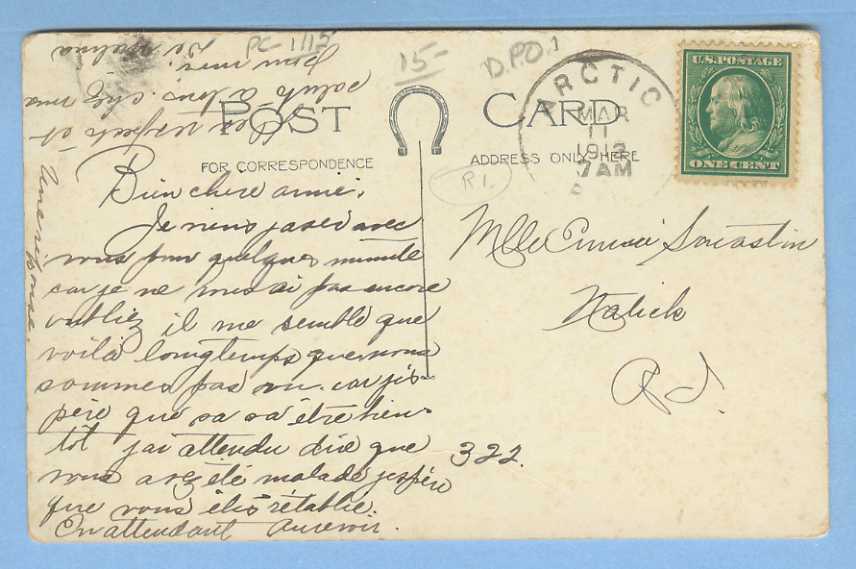 PC-1115
15-
D.P.O.1
POST CARD
FOR CORRESPONDENCE
ADDRESS ONLY HERE
ARCTIC
MAR
11
1912
7AM
R
U.S. POSTAGE
ONE CENT
R1.
Bien chere amie,
Je viens jaser avec
vous pour quelques minute
car je ne vous ai pas encore
oubliez il me semble que
voila longtemps que nous
sommes pas vu. car j'es-
père que sa va être bien-
tot jai attendu dire que
vous avez été malade jespère
que vous êtes rétablie.
En attendant aurevoir.
Mlle
Natick
R I.
322.
respects et
saluts a tous chez vous
pour moi.
De